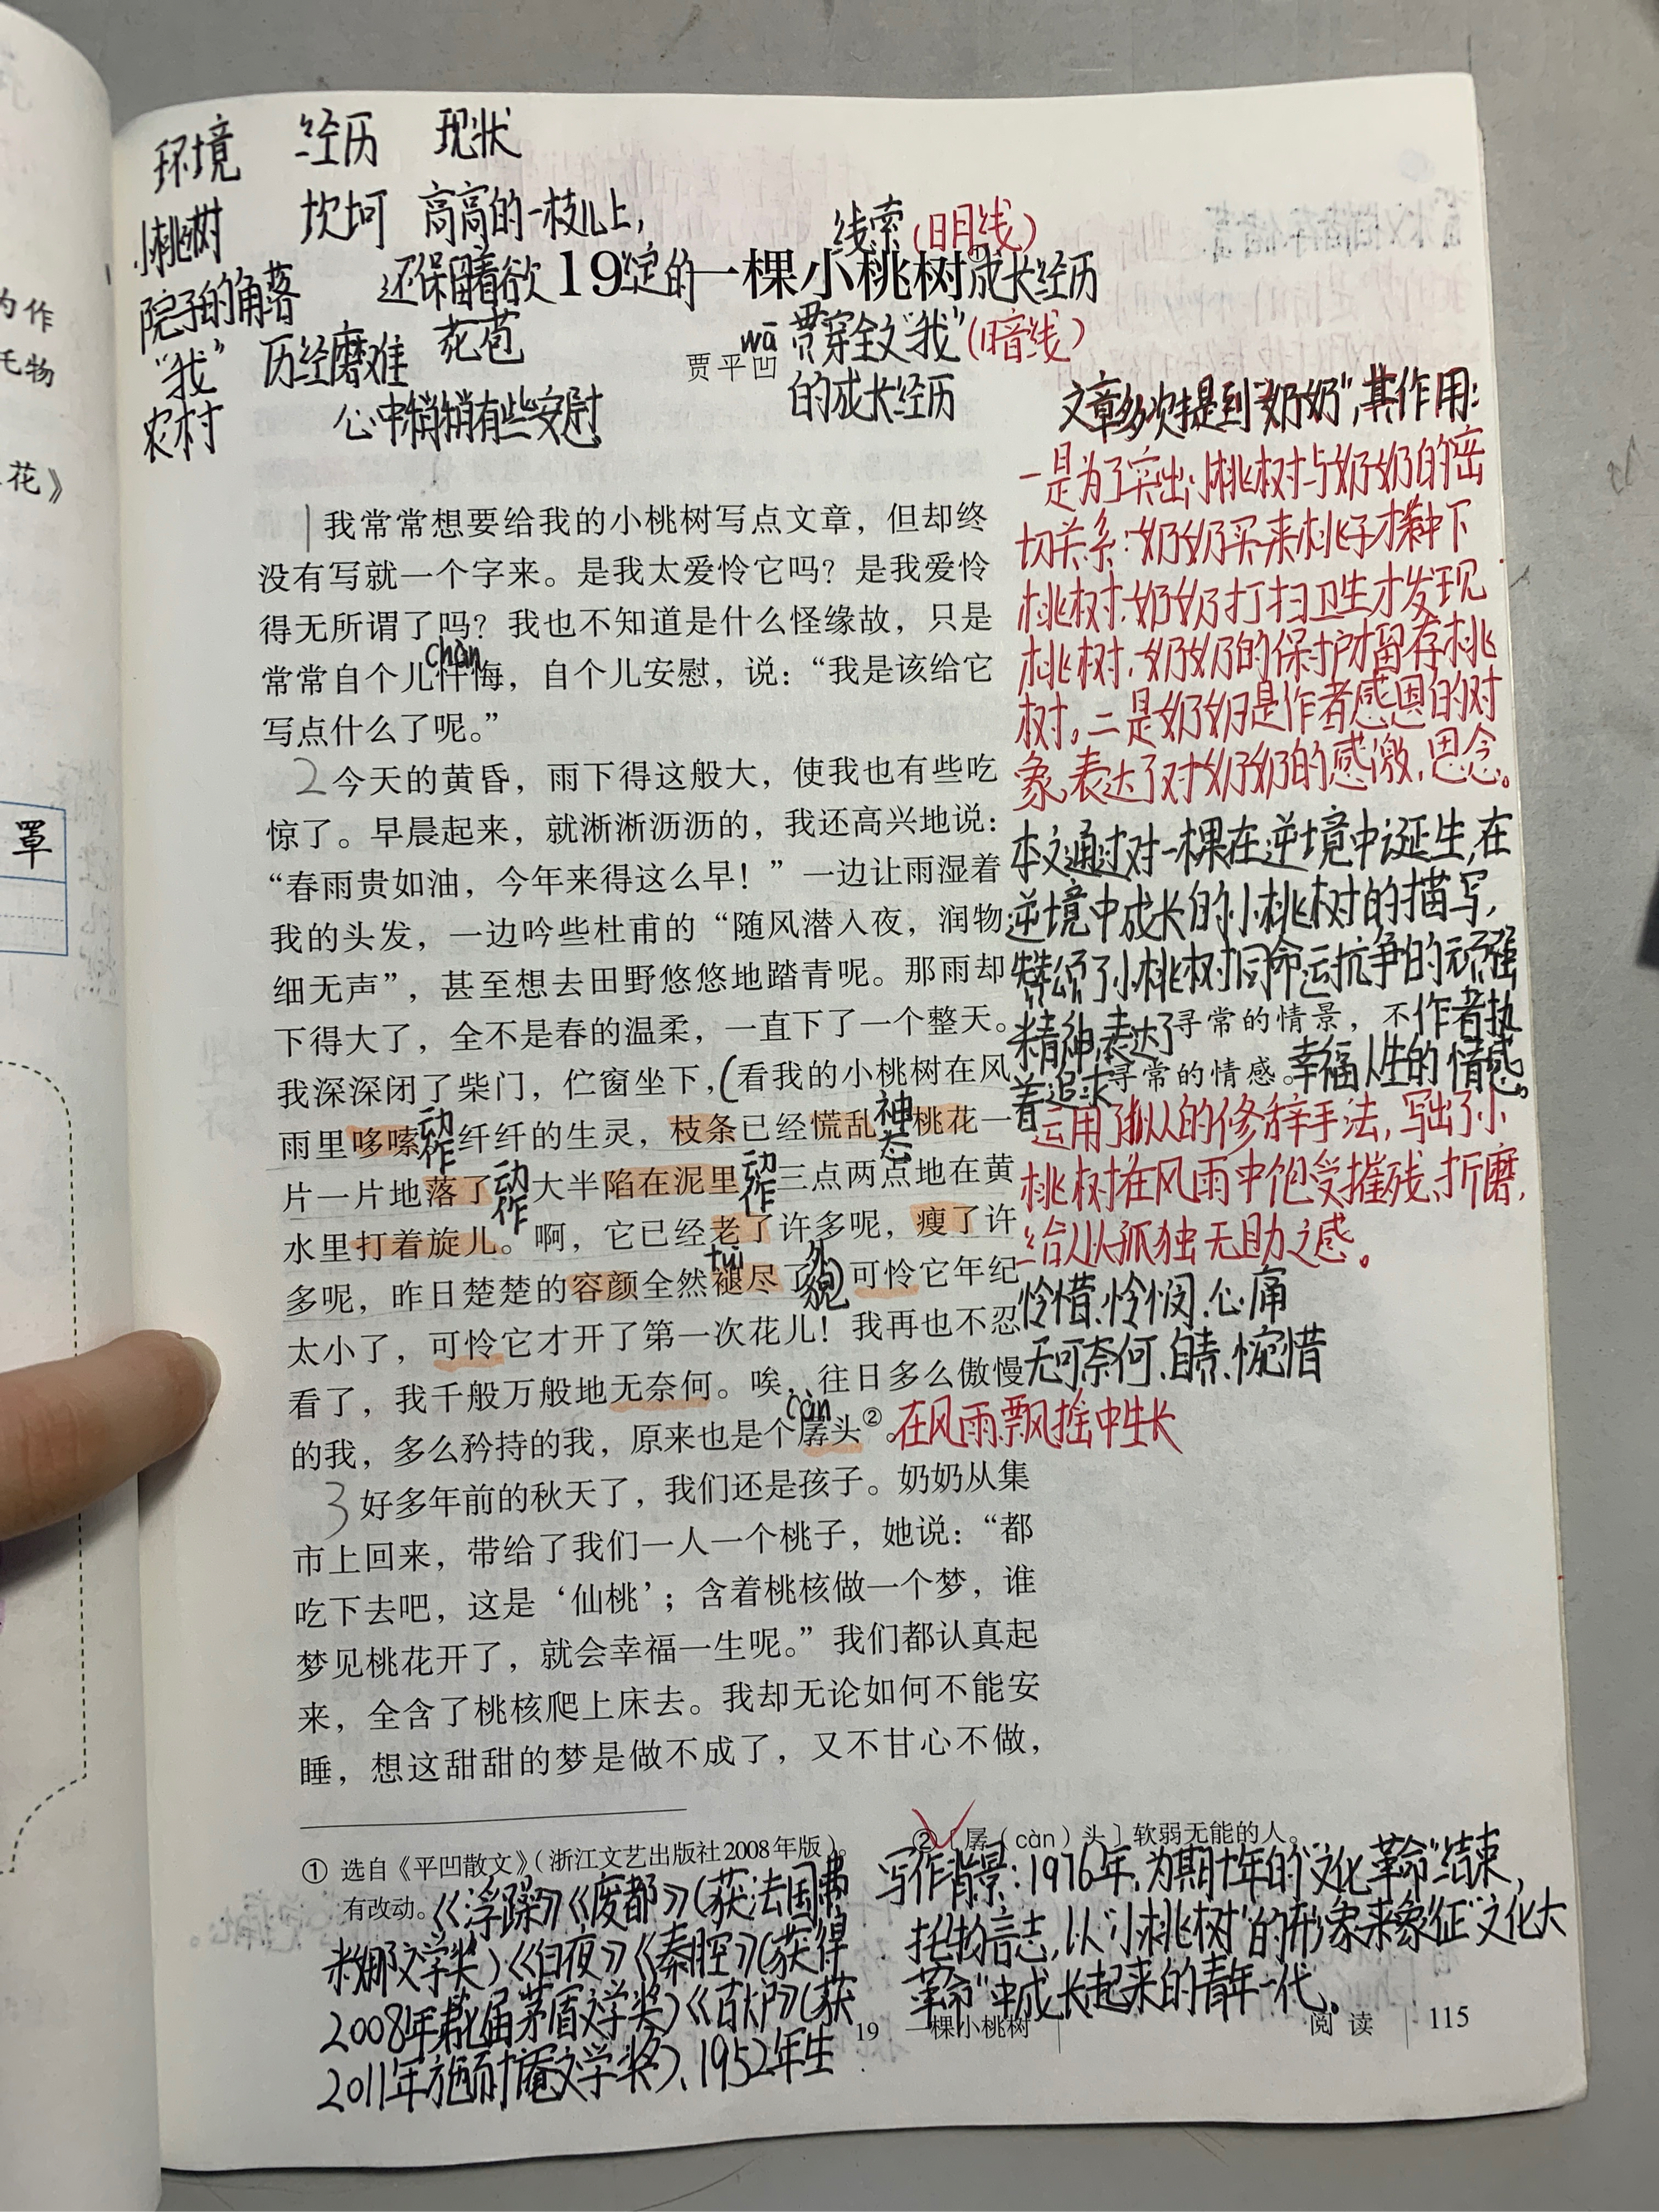 为作
毛物
花》
罩
环境 经历 现状
小桃树 坎坷 高高的一枝儿上,
院子的角落 还保留着欲绽的
花苞
"我" 历经磨难
农村 心中稍稍有些安慰
线索(明线)
19 一棵小桃树① 成长经历
wā
贾平凹
贯穿全文"我"(暗线)
的成长经历
1 我常常想要给我的小桃树写点文章，但却终
没有写就一个字来。是我太爱怜它吗？是我爱怜
得无所谓了吗？我也不知道是什么怪缘故，只是
chàn
常常自个儿忏悔，自个儿安慰，说：“我是该给它
写点什么了呢。”
2 今天的黄昏，雨下得这般大，使我也有些吃
惊了。早晨起来，就淅淅沥沥的，我还高兴地说：
“春雨贵如油，今年来得这么早！”一边让雨湿着
我的头发，一边吟些杜甫的“随风潜入夜，润物
细无声”，甚至想去田野悠悠地踏青呢。那雨却
下得大了，全不是春的温柔，一直下了一个整天。
我深深闭了柴门，伫窗坐下，(看我的小桃树在风
雨里哆嗦 动作 纤纤的生灵，枝条已经慌乱 神态 桃花一
片一片地落了 动作 大半陷在泥里 动作 三点两点地在黄
水里打着旋儿。啊，它已经老了许多呢，瘦了许
tuì
多呢，昨日楚楚的容颜全然褪尽了 外貌) 可怜它年纪
太小了，可怜它才开了第一次花儿！我再也不忍
看了，我千般万般地无奈何。唉，往日多么傲慢
càn
的我，多么矜持的我，原来也是个孱头②。
3 好多年前的秋天了，我们还是孩子。奶奶从集
市上回来，带给了我们一人一个桃子，她说：“都
吃下去吧，这是‘仙桃’；含着桃核做一个梦，谁
梦见桃花开了，就会幸福一生呢。”我们都认真起
来，全含了桃核爬上床去。我却无论如何不能安
睡，想这甜甜的梦是做不成了，又不甘心不做，
文章多次提到"奶奶",其作用:
一是为了突出小桃树与奶奶的密
切关系:奶奶买来桃子才种下
桃树.奶奶打扫卫生才发现
桃树.奶奶的保护才留存桃
树。二是奶奶是作者感恩的对
象,表达了对奶奶的感激、思念。
本文通过对一棵在逆境中诞生,在
逆境中成长的小桃树的描写,
赞颂了小桃树同命运抗争的顽强
精神,表达了 作者执
寻常的情景，不
着追求 幸福人生的情感。
寻常的情感。
运用了拟人的修辞手法,写出了小
桃树在风雨中饱受摧残、折磨,
给人以孤独无助之感。
怜惜、怜悯、心痛
无可奈何、自责、惋惜
在风雨飘摇中生长
① 选自《平凹散文》（浙江文艺出版社2008年版）。
有改动。
《浮躁》《废都》(获法国费
米娜文学奖)《白夜》《秦腔》(获得
2008年第七届茅盾文学奖)《古炉》(获
2011年施耐庵文学奖)、1952年生
②〔孱（càn）头〕软弱无能的人。
写作背景:1976年,为期十年的"文化革命"结束,
托物言志,以"小桃树"的形象来象征"文化大
革命"中成长起来的青年一代。
19 一棵小桃树
阅读 115